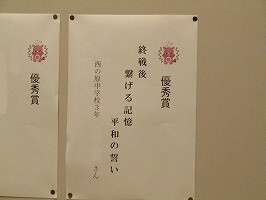 優秀賞
終戦後
繋げる記憶
平和の誓い
西の原中学校3年
さん
優秀賞